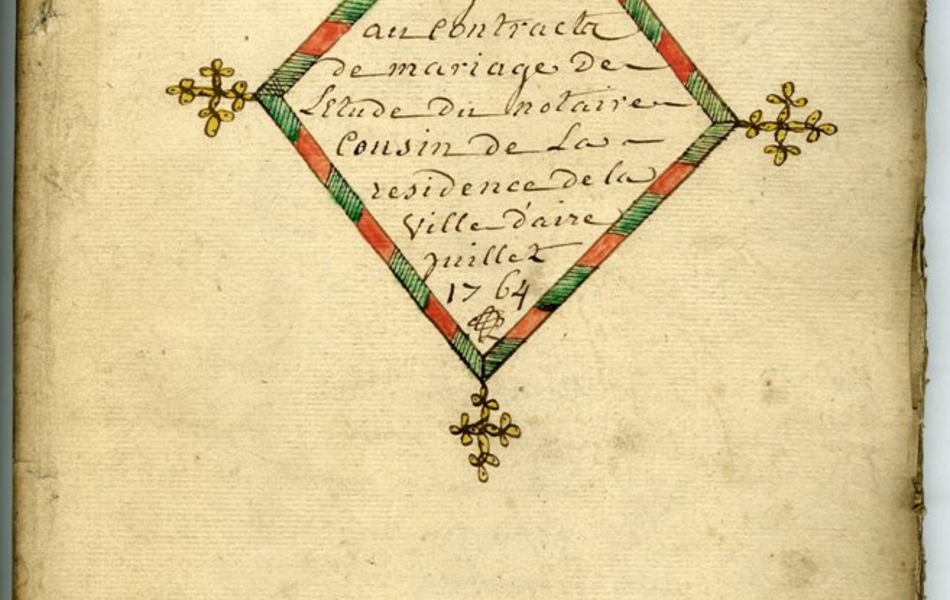 au contracts
de mariage de
Letude du notaire
Cousin de La
residence de la
Ville d'aire
juillet
1764